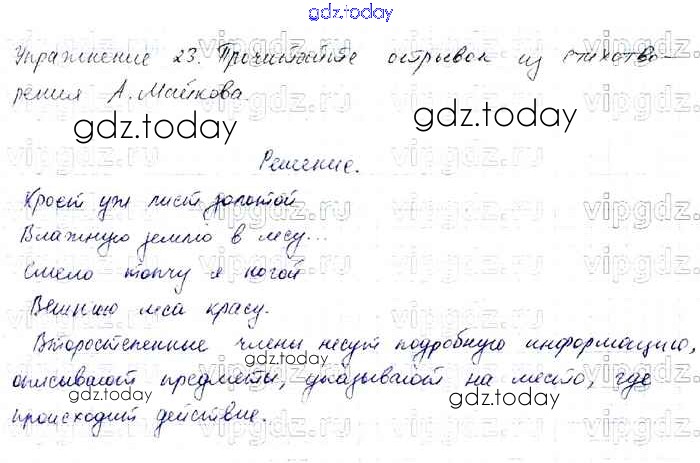 gdz.today
Упражнение 23. Прочитайте отрывок из стихотво-
рения А. Майкова.
gdz.today
gdz.today
Решение.
Кроет уж лист золотой
Влажную землю в лесу...
Смело топчу я ногой
Вешнюю леса красу.
Второстепенные члены несут подробную информацию,
описывают предметы, указывают на место, где
происходит действие.
gdz.today
gdz.today